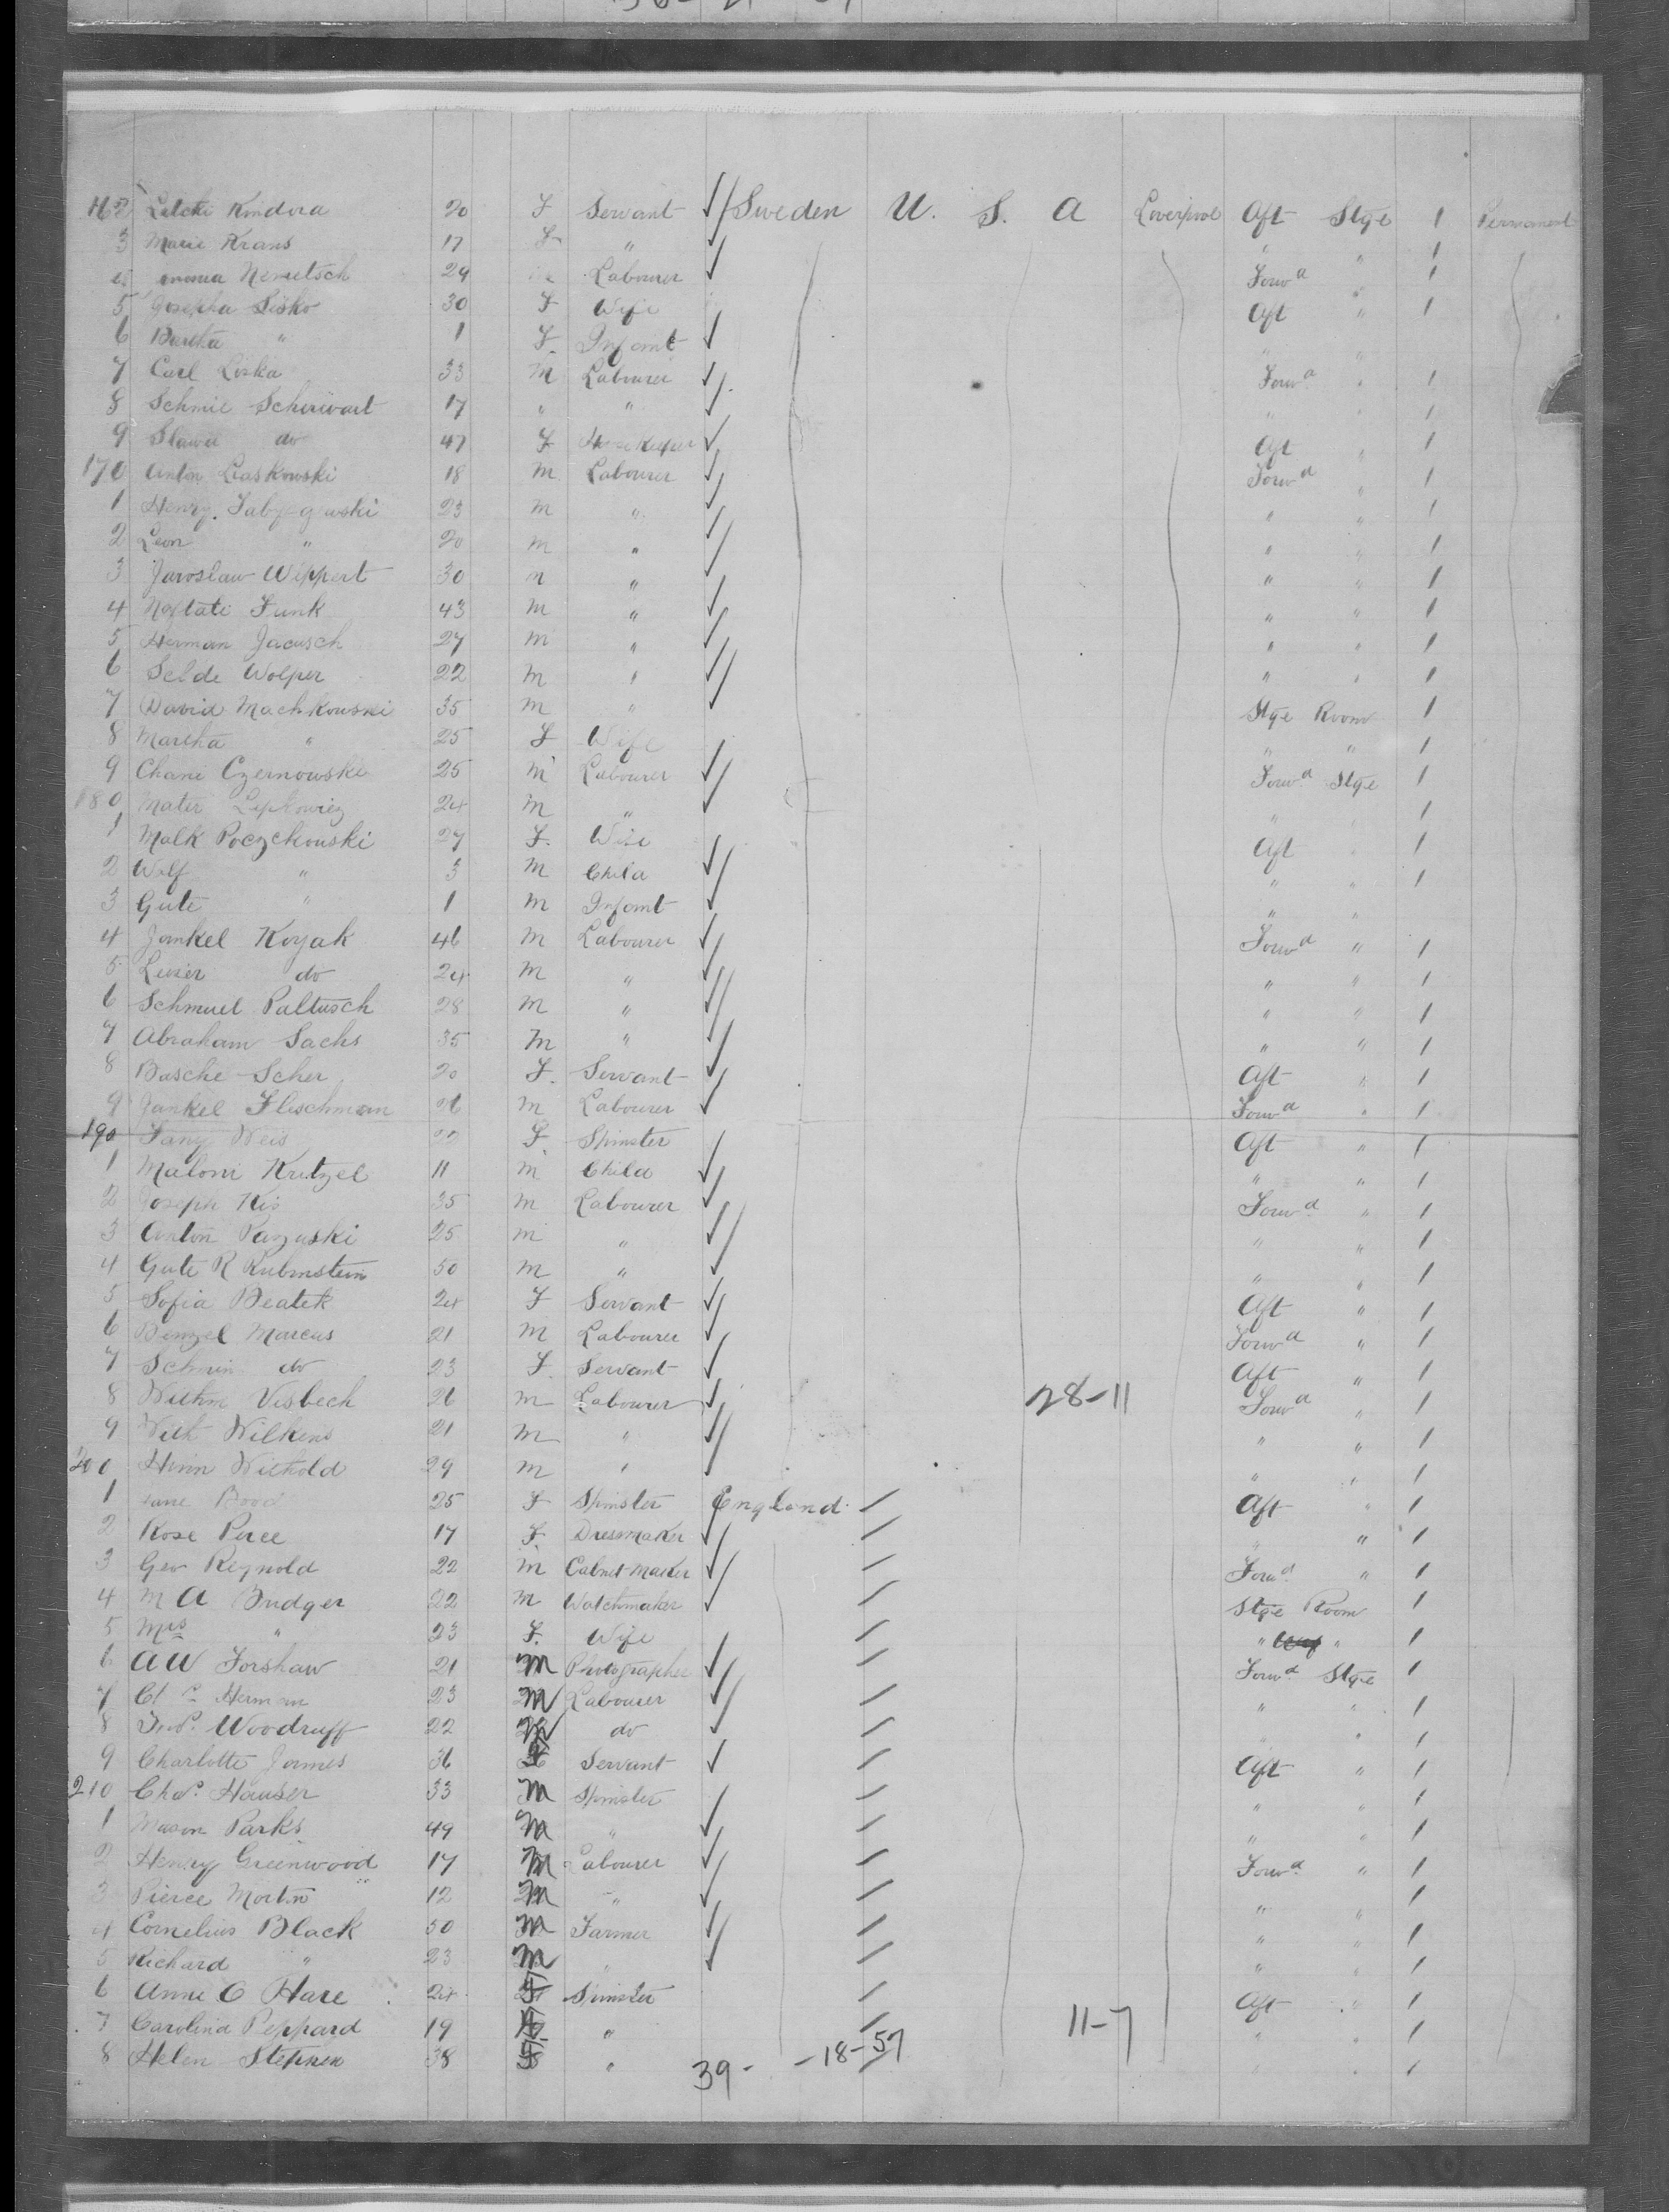 162 Kondora 20 F Servant Sweden U. S. A Liverpool Aft Stge 1 Permanent
3 Marie Krans 17 F " " " 1
Nemetsch 29 Labourer Forwd " 1
5 Josepha Lisko 30 F Wife Aft " 1
6 Bertha " 1 F. Infant " "
7 Carl Liska 33 M Labourer Forwd " 1
8 Schmil 17 " " " " 1
9 do 47 F Housekeeper Aft " 1
170 Anton Liaskowski 18 M Labourer Forwd " 1
1 Henry 23 M " " " 1
2 Leon " 20 M " " " 1
3 Jaroslaw Weppert 30 " " " 1
4 Naftati Funk 43 M " " " 1
5 Herman Jacusch 27 M " " " 1
6 Selde Wolper 22 M " " " 1
7 David Machkowski 35 M " Stge Room 1
8 Martha " 25 F Wife " " 1
9 Chani Czernowski 25 M Labourer Forwd Stge 1
180 24 M " " " 1
1 Malk Poczchowski 27 F. Wife Aft " 1
2 Wolf " 3 M Child " " 1
3 Gute " 1 M Infant " "
4 Jankel Koyak 46 M Labourer Forwd " 1
5 do 24 M " " " 1
6 Schmuel Paltusch 28 M " " " 1
7 Abraham Sachs 35 M " " " 1
8 Basche Scher 20 F. Servant Aft " 1
9 Jankel Flischman M Labourer Forwd " 1
190 Fany Weis F. Spinster Aft " 1
1 Maloni Kritzel 11 M Child " " 1
2 Joseph Kis 35 M Labourer Forwd " 1
3 Anton Parzuski 25 M " " " 1
4 Gute R Rubinstein 50 M " " " 1
5 Sofia Beatek 24 F Servant Aft " 1
6 Benzel Marcus 21 M Labourer Forwd " 1
7 Schmin do 23 F. Servant Aft " 1
8 Visbeck 26 M Labourer 28-11 Forwd " 1
9 Wilkens 21 M " " " 1
200 Withold 29 M " " " 1
1 25 F Spinster England Aft " 1
2 Rose Peree 17 F. Dressmaker " " 1
3 Geo Reynold 22 M Cabnet Maker Forwd " 1
4 M A Bridger 22 M Watchmaker Stge Room 1
5 Mrs " 23 F. Wife " " 1
6 A W Forshaw 21 M Photographer Forwd Stge 1
7 Herman 23 M Labourer " " 1
8 Woodruff 22 M do " " 1
9 Charlotte James 36 F Servant Aft " 1
210 Chas. Hauser 33 M Spinster " " 1
1 Mason Parks 49 M " " " 1
2 Henry Greenwood 17 M Labourer Forwd " 1
3 Pierce Martin 12 M " " " 1
4 Cornelius Black 50 M Farmer " " 1
5 Richard " 23 M " " " 1
6 Anne O Hare 24 F Spinster Aft " 1
7 Carolina Peppard 19 F " 11-7 " " 1
8 Helen Stephen 38 F " 39- -18-57 " " 1